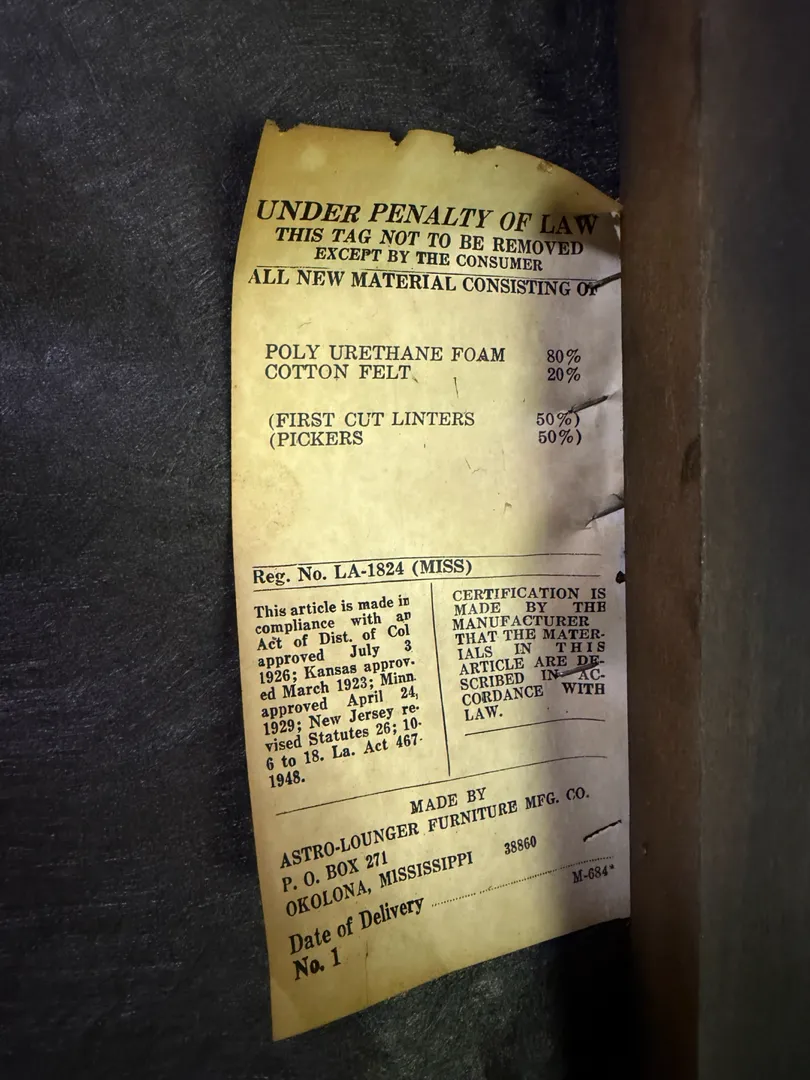 UNDER PENALTY OF LAW
THIS TAG NOT TO BE REMOVED
EXCEPT BY THE CONSUMER
ALL NEW MATERIAL CONSISTING OF
POLY URETHANE FOAM 80%
COTTON FELT 20%
(FIRST CUT LINTERS 50%)
(PICKERS 50%)
Reg. No. LA-1824 (MISS)
This article is made in
compliance with an
Act of Dist. of Col
approved July 3
1926; Kansas approv-
ed March 1923; Minn.
approved April 24,
1929; New Jersey re-
vised Statutes 26; 10-
6 to 18. La. Act 467-
1948.
CERTIFICATION IS
MADE BY THE
MANUFACTURER
THAT THE MATER-
IALS IN THIS
ARTICLE ARE DE-
SCRIBED IN AC-
CORDANCE WITH
LAW.
MADE BY
ASTRO-LOUNGER FURNITURE MFG. CO.
P. O. BOX 271
OKOLONA, MISSISSIPPI 38860
Date of Delivery
M-684*
No. 1